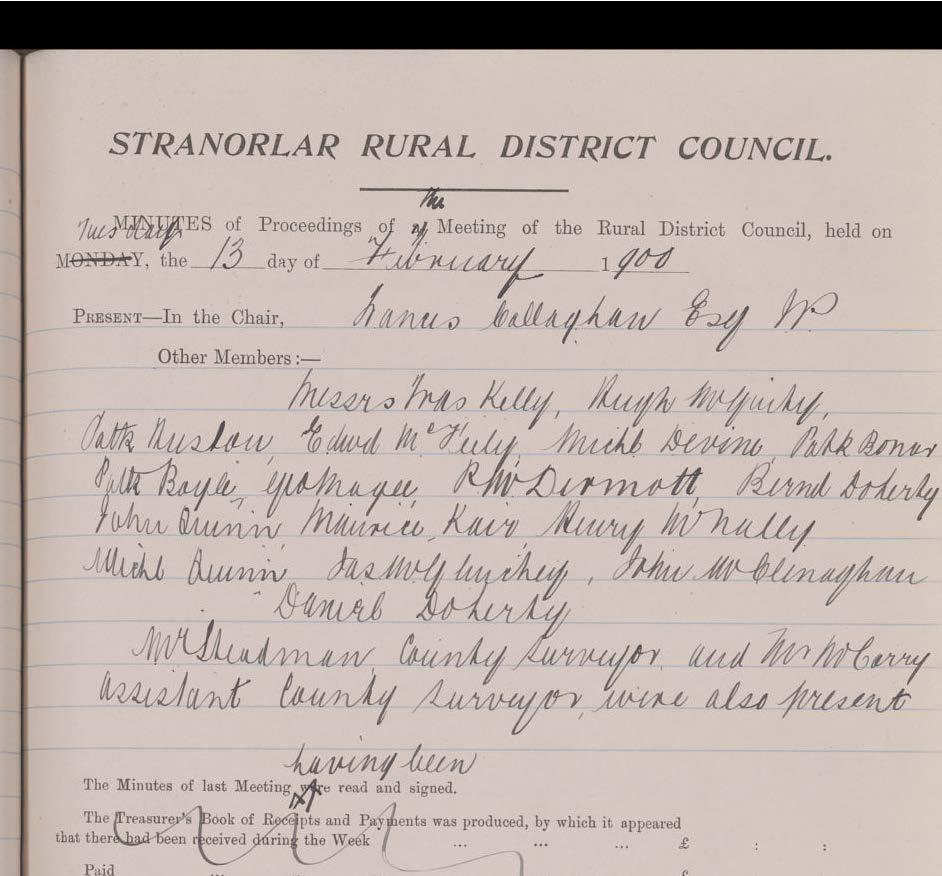 STRANORLAR RURAL DISTRICT COUNCIL.
the
MINUTES of Proceedings of a Meeting of the Rural District Council, held on
Tuesday
MONDAY, the 13 day of February 1900
PRESENT—In the Chair, Francis Callaghan Esq JP
Other Members:—
Messrs Fras Kelly, Hugh McGinty,
Patk Huston, Edwd McFeely, Michl Devine, Patk Bonar
Patk Boyle, Geo Magee, R McDermott, Bernd Doherty
John Quinn, Maurice Kair, Henry McNally
Michl Quinn, Jas McGlinchey, John McClenaghan
Daniel Doherty
Mr Steadman County Surveyor, and Mr McCarry
assistant County Surveyor, were also present
having been
The Minutes of last Meeting were read and signed.
The Treasurer's Book of Receipts and Payments was produced, by which it appeared
that there had been received during the Week ... ... ... £ : :
Paid ... ... ... ... £